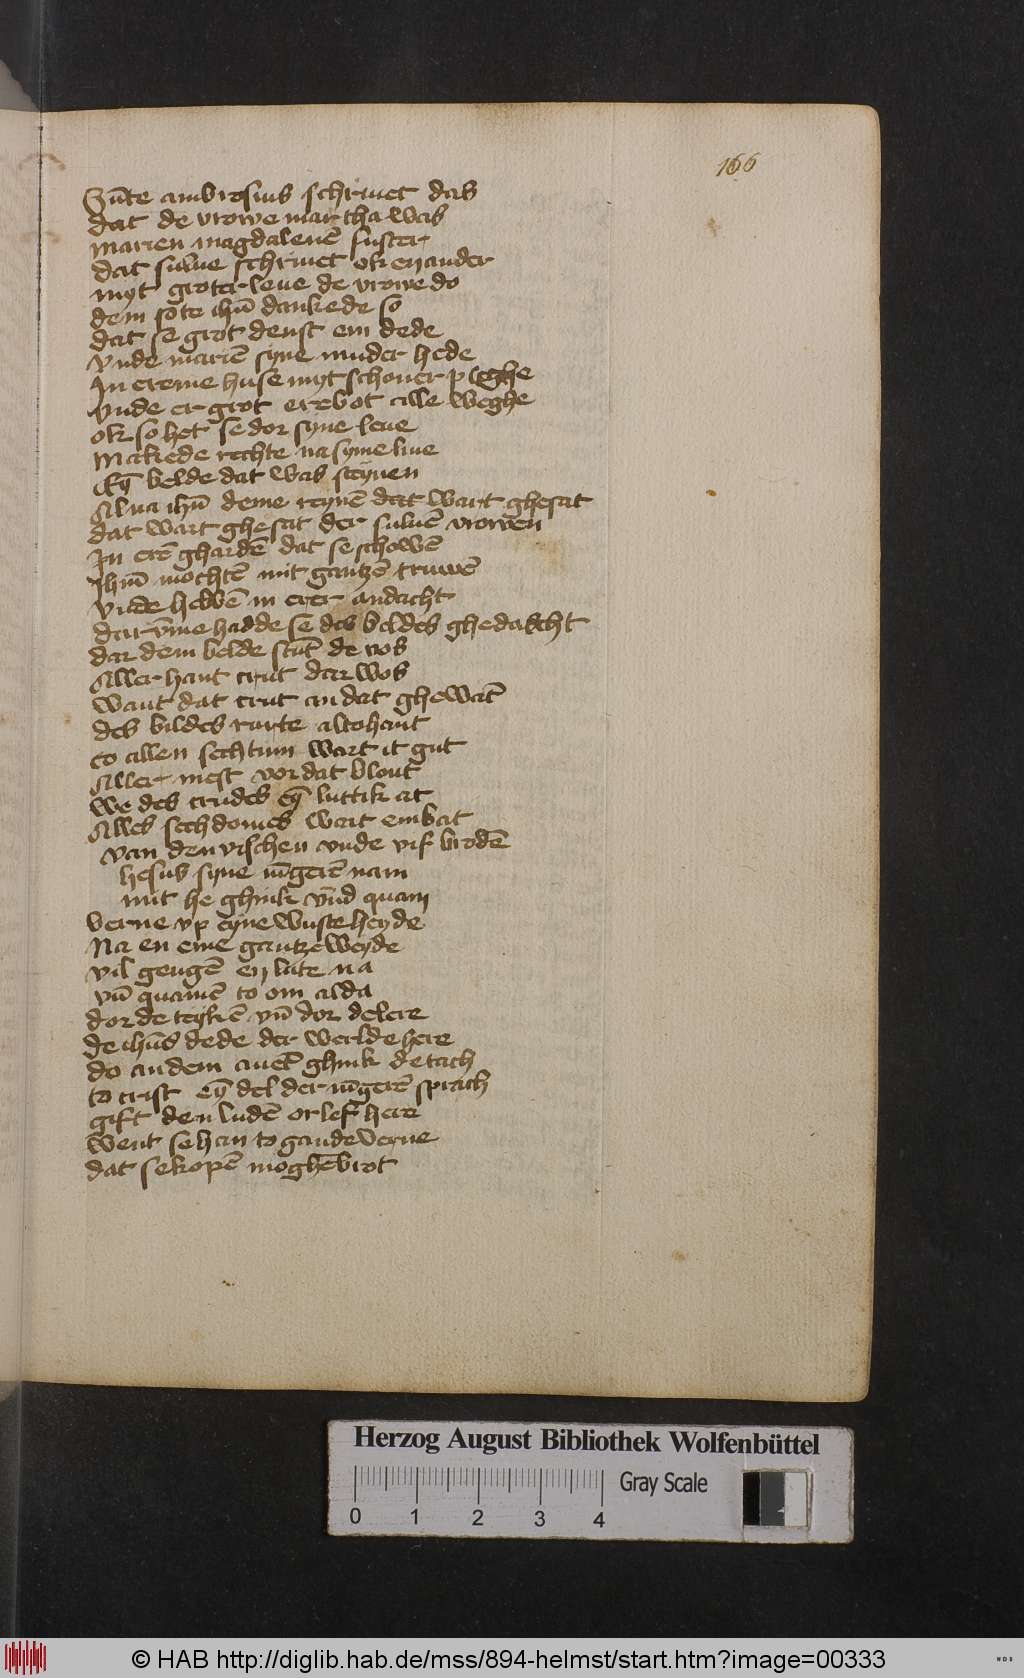 166
Sūte ambrosius schriuet das
dat de vrowe martha was
marien magdalenē suster
dat sulue schriuet ok eyn ander
myt groter leue de vrowe do
dem sote ihū dankede so
dat se grot denst em dede
vnde mariē syne muder hede
In ereme huse myt schoner pleghe
vnde er grot erebot alle weghe
ok so het se dor syne leue
Makede rechte na syme liue
Ey̅ belde dat was steynen
Al na ihū deme reynē dat wart ghesat
dat wart ghesat der suluē vrowen
In erē ghardē dat se schowē
Ihm̄ mochtē mit gantzē truwē
vnde hebbē in erer andacht
dar v̄me hadde se des beldes ghedadcht
dar dem belde stūt de ros
Aller hant crut dar wos
want dat crut an dat ghewāt
des bildes rurte altohant
to allen sechtum wart it gut
Aller mest vor dat blout
we des crudes ey̅ luttik at
Alles sechdomes wart em bat
van den vischen vnde vif brodē
hesus syne iūgerē nam
mit he ghink vn̄d quam
verne vp eyne wuste heyde
Na en eme gantze weyde
vil gengē ey lute na
vn̄ quamē to om alda
dor de teykē vn̄ dor de lere
de ihūs dede der werlde here
do an dem auēt ghink de tach
to crist ey̅ del der iūgerē sprach
gift den ludē orlef here
went se han to gande verne
dat se kopē moghē brot
Herzog August Bibliothek Wolfenbüttel
Gray Scale
0 1 2 3 4
© HAB http://diglib.hab.de/mss/894-helmst/start.htm?image=00333